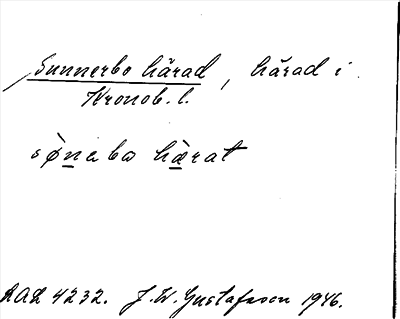 Sunnerbo härad, härad i
Kronob. l.
sø̀nabo hæ̀rat
AAL 4232. J. W. Gustafsson 1946.